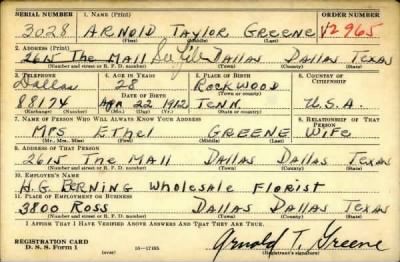 SERIAL NUMBER 1. NAME (Print) ORDER NUMBER
3028 ARNOLD TAYLOR GREENE V2965
(First) (Middle) (Last)
2. ADDRESS (Print)
2615 The Mall DALLAS DALLAS TEXAS
(Number and street or R. F. D. number) (Town) (County) (State)
3. TELEPHONE 4. AGE IN YEARS 5. PLACE OF BIRTH 6. COUNTRY OF CITIZENSHIP
Dallas 28 ROCKWOOD
DATE OF BIRTH (Town or county)
88174 Apr 22 1912 TENN. U.S.A.
(Exchange) (Number) (Mo.) (Day) (Yr.) (State or country)
7. NAME OF PERSON WHO WILL ALWAYS KNOW YOUR ADDRESS 8. RELATIONSHIP OF THAT PERSON
MRS Ethel GREENE WIFE
(Mr., Mrs., Miss) (First) (Middle) (Last)
9. ADDRESS OF THAT PERSON
2615 The Mall DALLAS DALLAS TEXAS
(Number and street or R. F. D. number) (Town) (County) (State)
10. EMPLOYER'S NAME
H.G. BERNING Wholesale Florist
11. PLACE OF EMPLOYMENT OR BUSINESS
3800 Ross DALLAS DALLAS TEXAS
(Number and street or R. F. D. number) (Town) (County) (State)
I AFFIRM THAT I HAVE VERIFIED ABOVE ANSWERS AND THAT THEY ARE TRUE.
REGISTRATION CARD
D. S. S. Form 1 (over) 16—17105 Arnold T. Greene